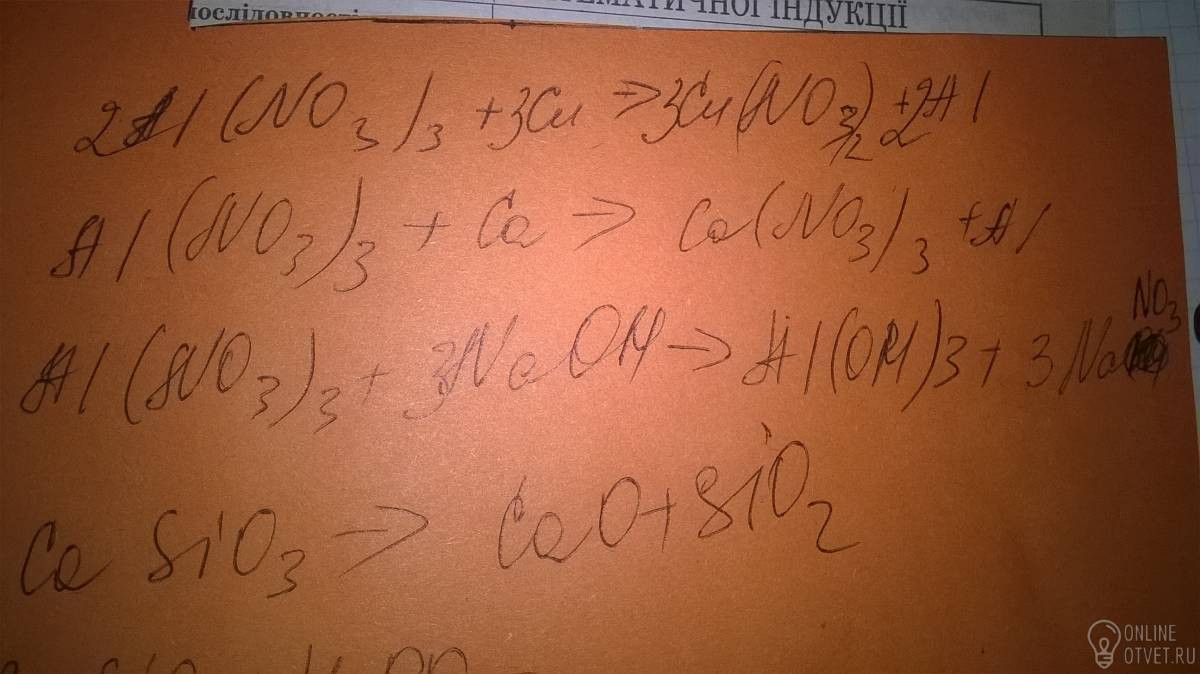 ПОСЛІДОВНОСТІ
ТЕМАТИЧНОЇ ІНДУКЦІЇ
2Al(NO3)3 + 3Cu → 3Cu(NO3)2 + 2Al
Al(NO3)3 + Ca → Ca(NO3)3 + Al
Al(NO3)3 + 3NaOH → Al(OH)3 + 3NaNO3
CaSiO3 → CaO + SiO2
ONLINE
OTVET.RU